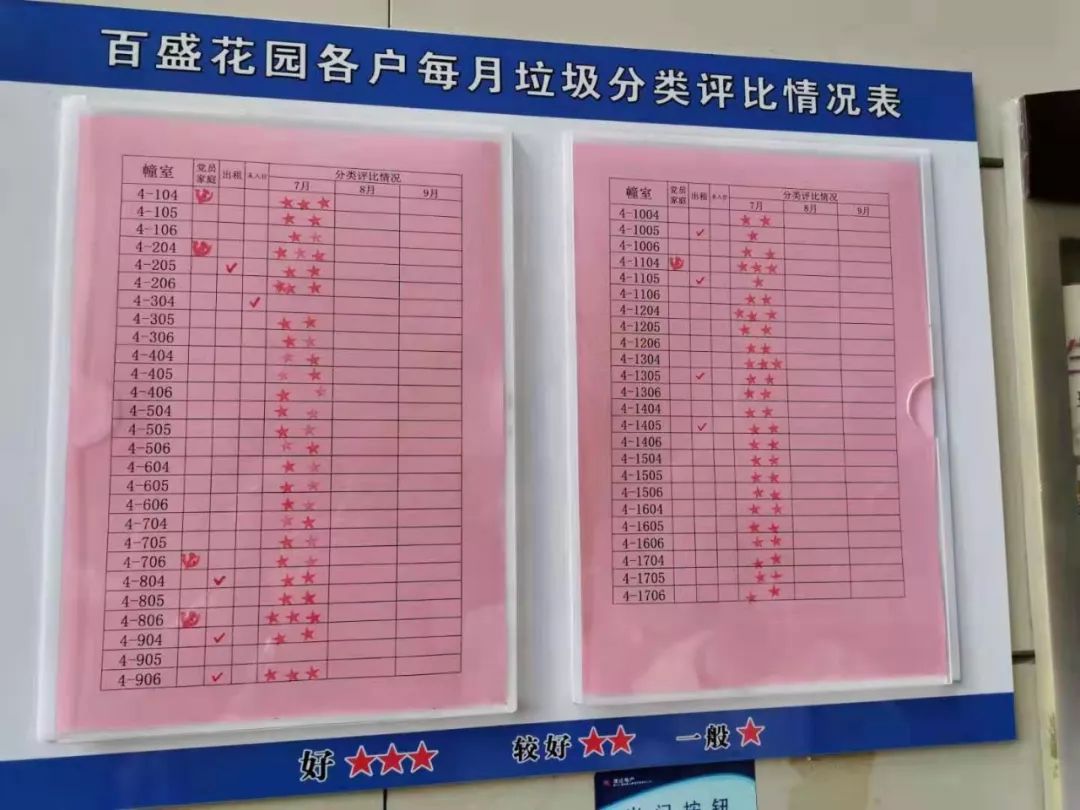 百盛花园各户每月垃圾分类评比情况表
幢室 党员家庭 出租 未入住 分类评比情况
7月 8月 9月
4-104
4-105
4-106
4-204
4-205
4-206
4-304
4-305
4-306
4-404
4-405
4-406
4-504
4-505
4-506
4-604
4-605
4-606
4-704
4-705
4-706
4-804
4-805
4-806
4-904
4-905
4-906
幢室 党员家庭 出租 未入住 分类评比情况
7月 8月 9月
4-1004
4-1005
4-1006
4-1104
4-1105
4-1106
4-1204
4-1205
4-1206
4-1304
4-1305
4-1306
4-1404
4-1405
4-1406
4-1504
4-1505
4-1506
4-1604
4-1605
4-1606
4-1704
4-1705
4-1706
好★★★ 较好★★ 一般★
门按钮